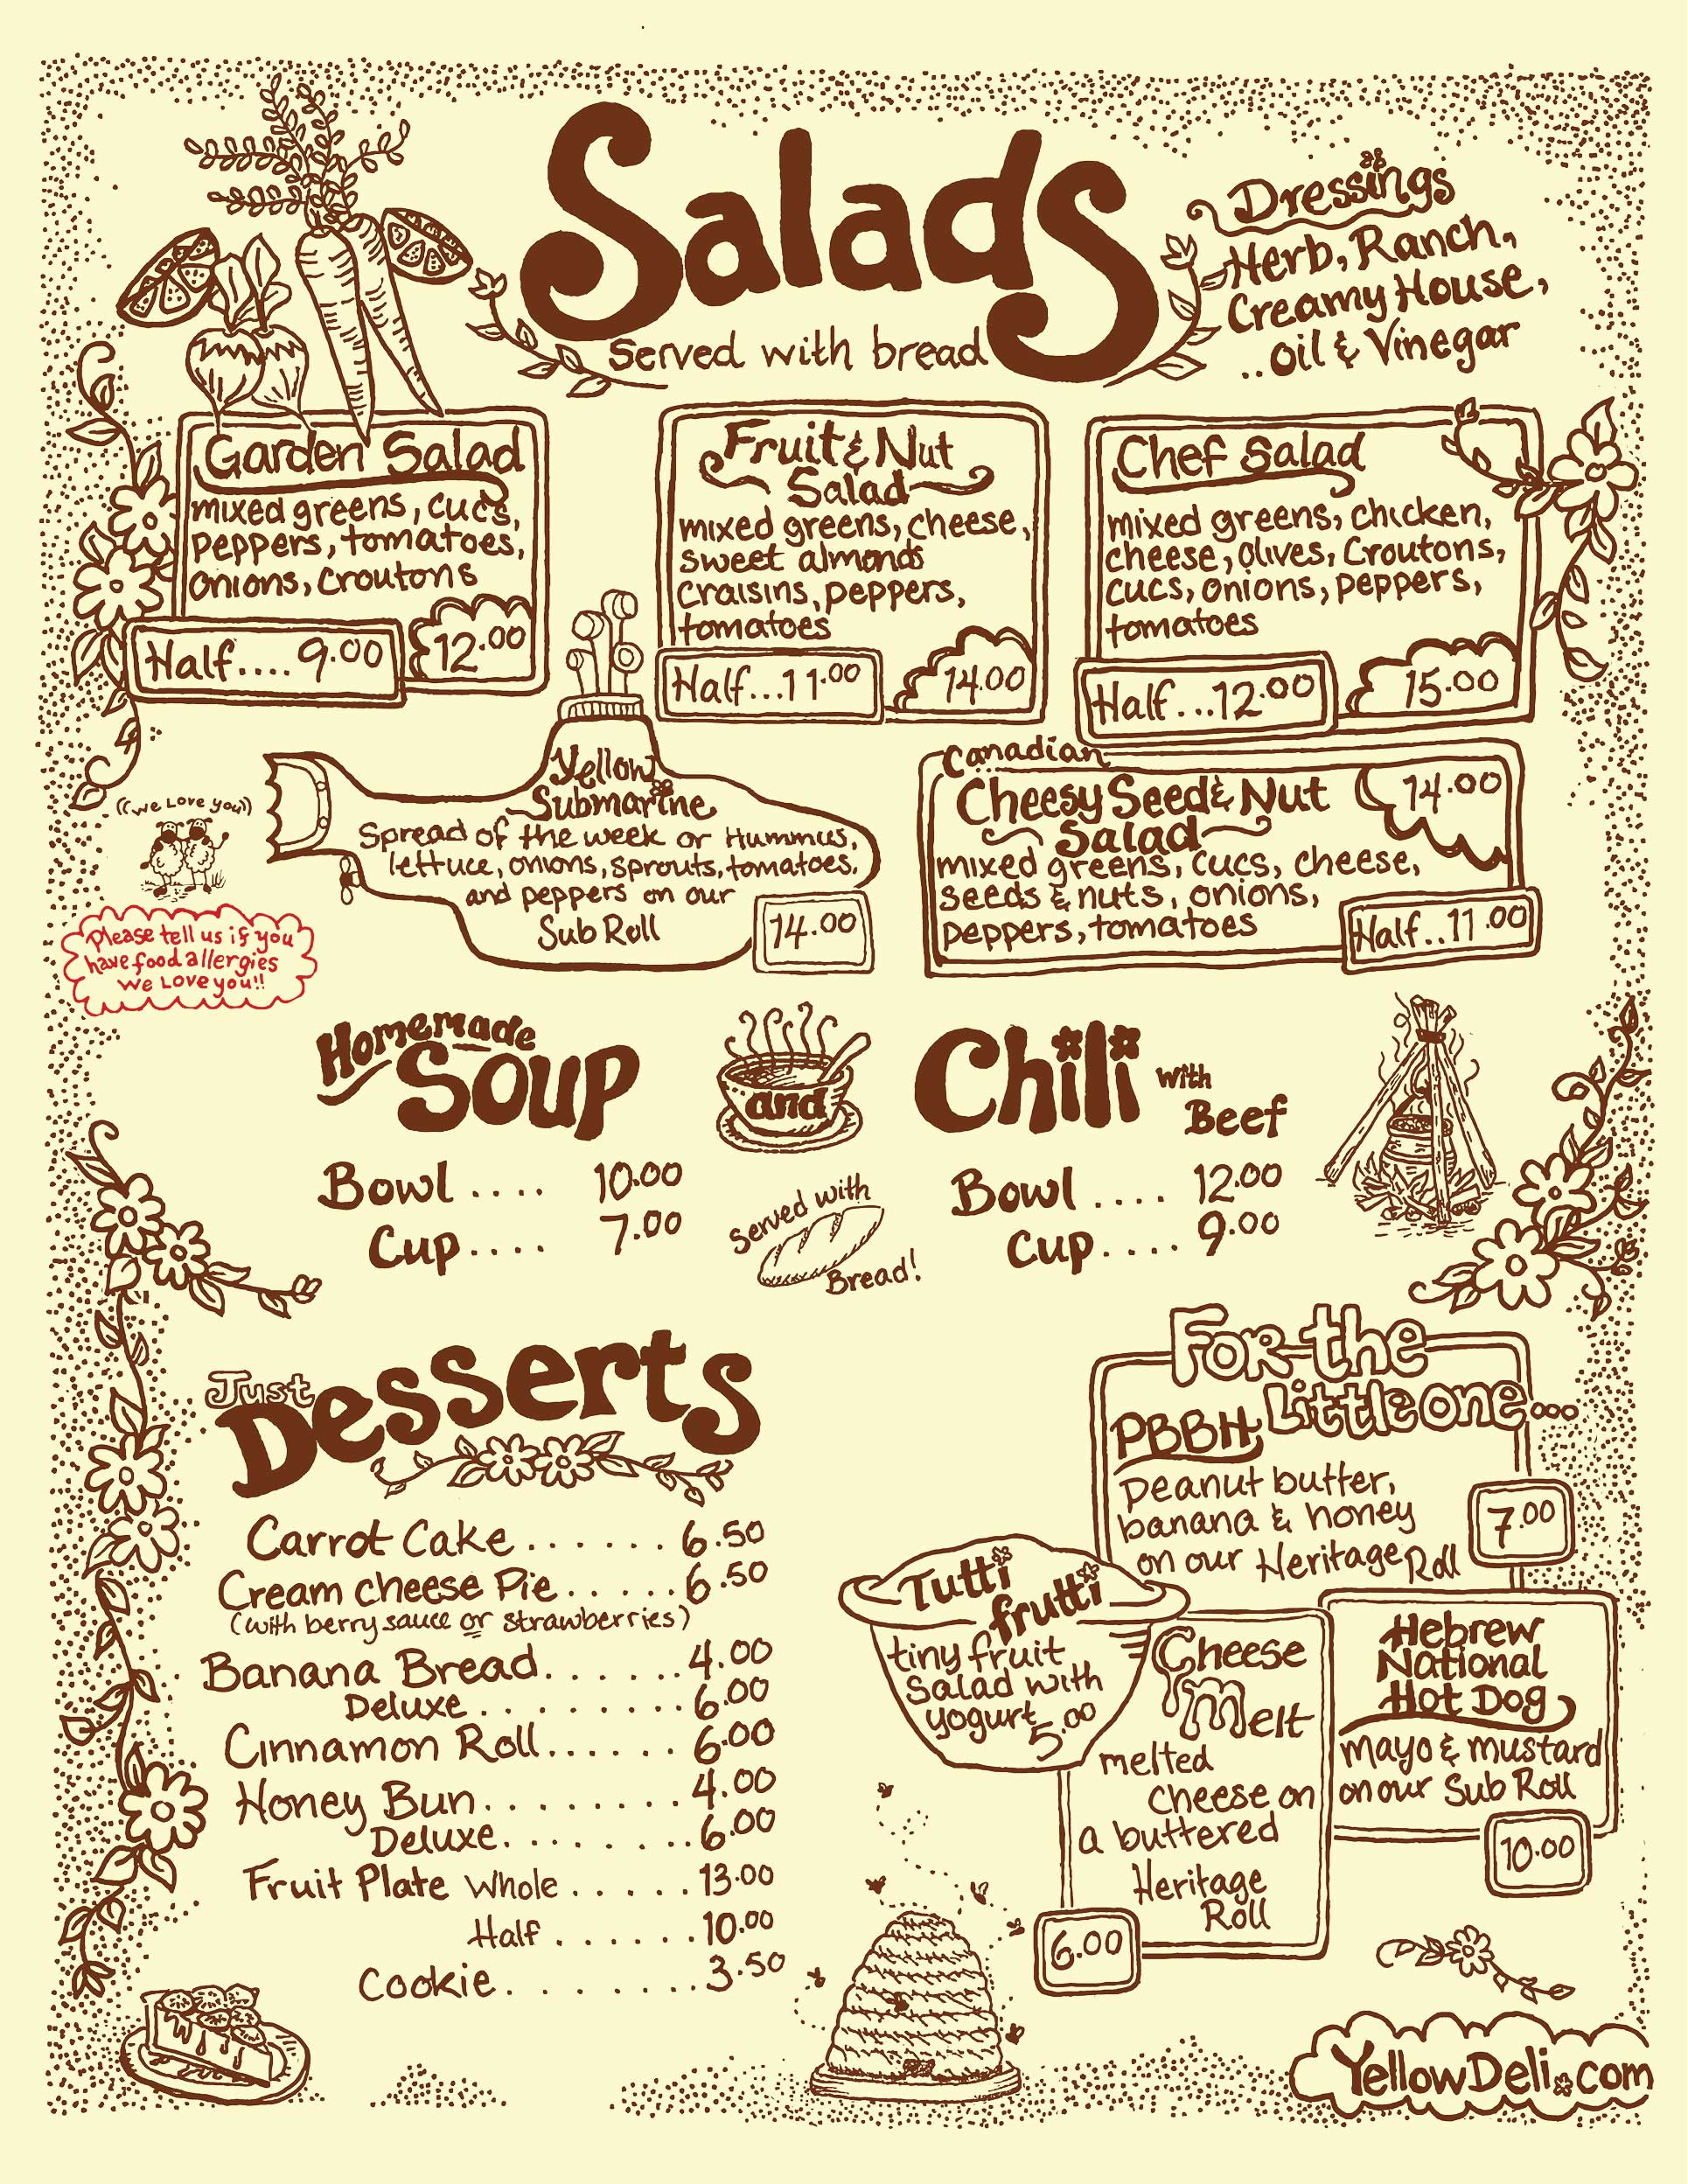 Salads
Served with bread
Dressings
Herb, Ranch,
Creamy House,
..oil & Vinegar
Garden Salad
mixed greens, cucs,
peppers, tomatoes,
onions, croutons
Half.... 9.00
12.00
Fruit & Nut
Salad
mixed greens, cheese,
sweet almonds
craisins, peppers,
tomatoes
Half...11.00
14.00
Chef Salad
mixed greens, chicken,
cheese, olives, Croutons,
cucs, onions, peppers,
tomatoes
Half...12.00
15.00
((we Love you))
Please tell us if you
have food allergies
we Love you!!
Yellow
Submarine
Spread of the week or Hummus,
lettuce, onions, sprouts, tomatoes,
and peppers on our
Sub Roll
14.00
Canadian
Cheesy Seed & Nut
Salad
14.00
mixed greens, cucs, cheese,
seeds & nuts, onions,
peppers, tomatoes
Half..11.00
Homemade
Soup
and
Chili with
Beef
Bowl.... 10.00
Cup.... 7.00
Served with
Bread!
Bowl.... 12.00
Cup.... 9.00
Just
Desserts
Carrot Cake...... 6.50
Cream cheese Pie..... 6.50
(with berry sauce or strawberries)
Banana Bread...... 4.00
Deluxe........ 6.00
Cinnamon Roll...... 6.00
Honey Bun........ 4.00
Deluxe........ 6.00
Fruit Plate Whole..... 13.00
Half...... 10.00
Cookie....... 3.50
For the
Little one...
PBBH
peanut butter,
banana & honey
on our Heritage Roll
7.00
Tutti
frutti
tiny fruit
Salad with
yogurt
5.00
Cheese
Melt
melted
cheese on
a buttered
Heritage
Roll
6.00
Hebrew
National
Hot Dog
mayo & mustard
on our Sub Roll
10.00
YellowDeli.com